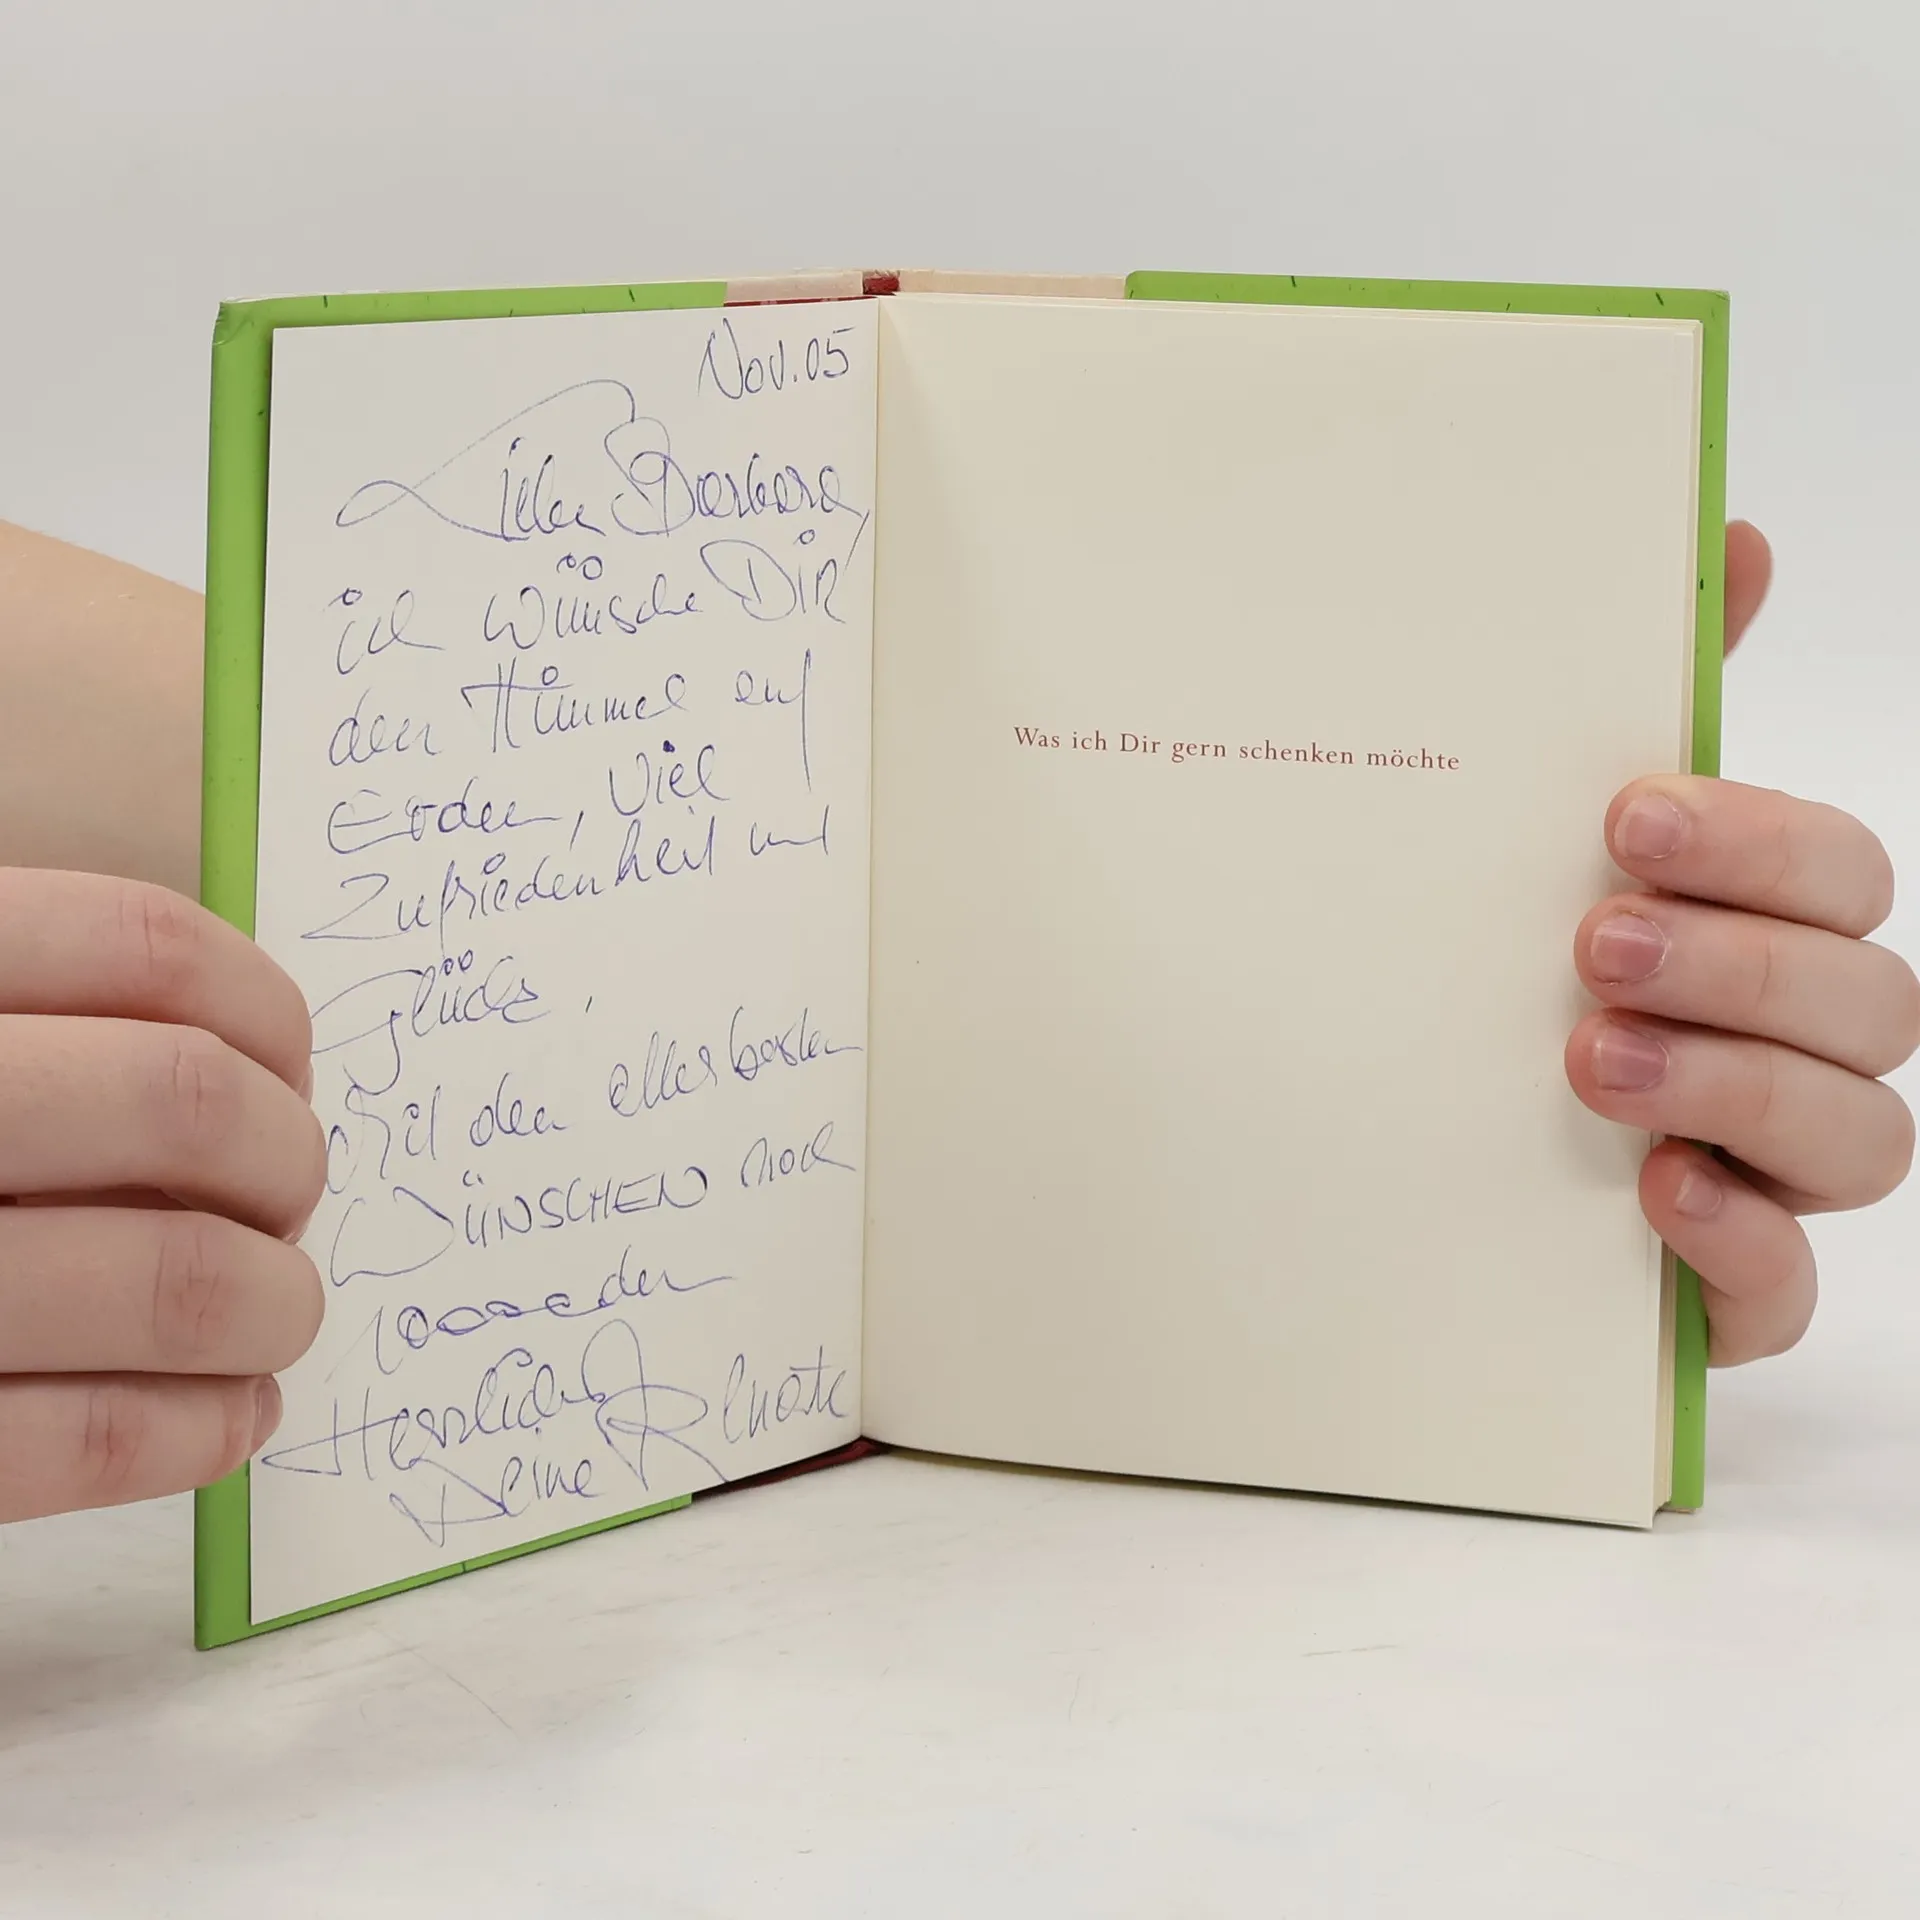 Nov. 05
Liebe Barbara,
ich wünsche Dir
den Himmel auf
Erden, viel
Zufriedenheit und
Glück,
Mit den allerbesten
WÜNSCHEN
Herzlichst
Deine Renate
Was ich Dir gern schenken möchte